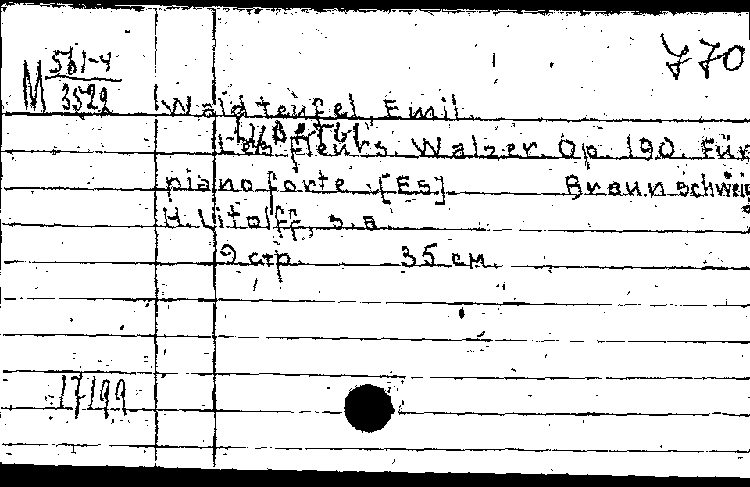 770
M 561-4
3522
Waldteufel, Emil.
Цветы
Les fleurs. Walzer. Op. 190. Für
pianoforte. [Es]. Braunschweig
H. Litolff, s. a.
9 стр. 35 см.
17199